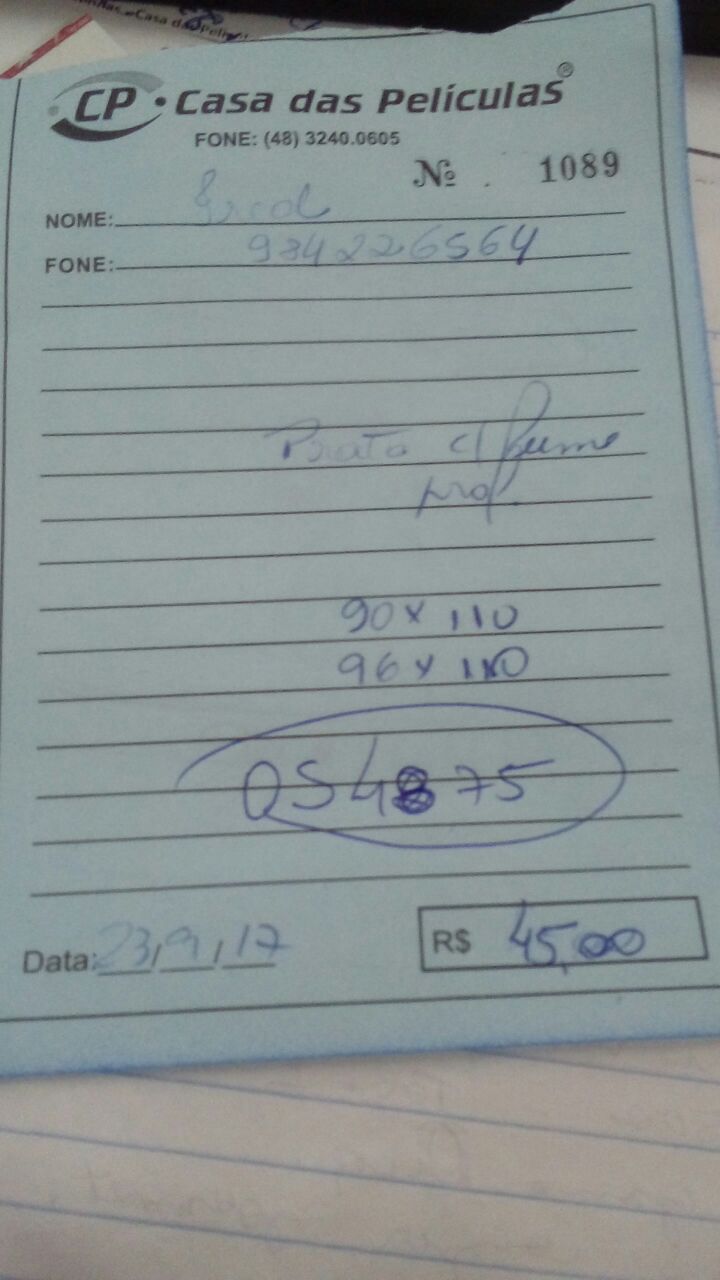 CP • Casa das Películas®
FONE: (48) 3240.0605
Nº 1089
NOME:
FONE: 984226564
Prata c/
prof.
90 x 110
96 x 110
OS 4875
Data: 23/9/17
R$ 45,00